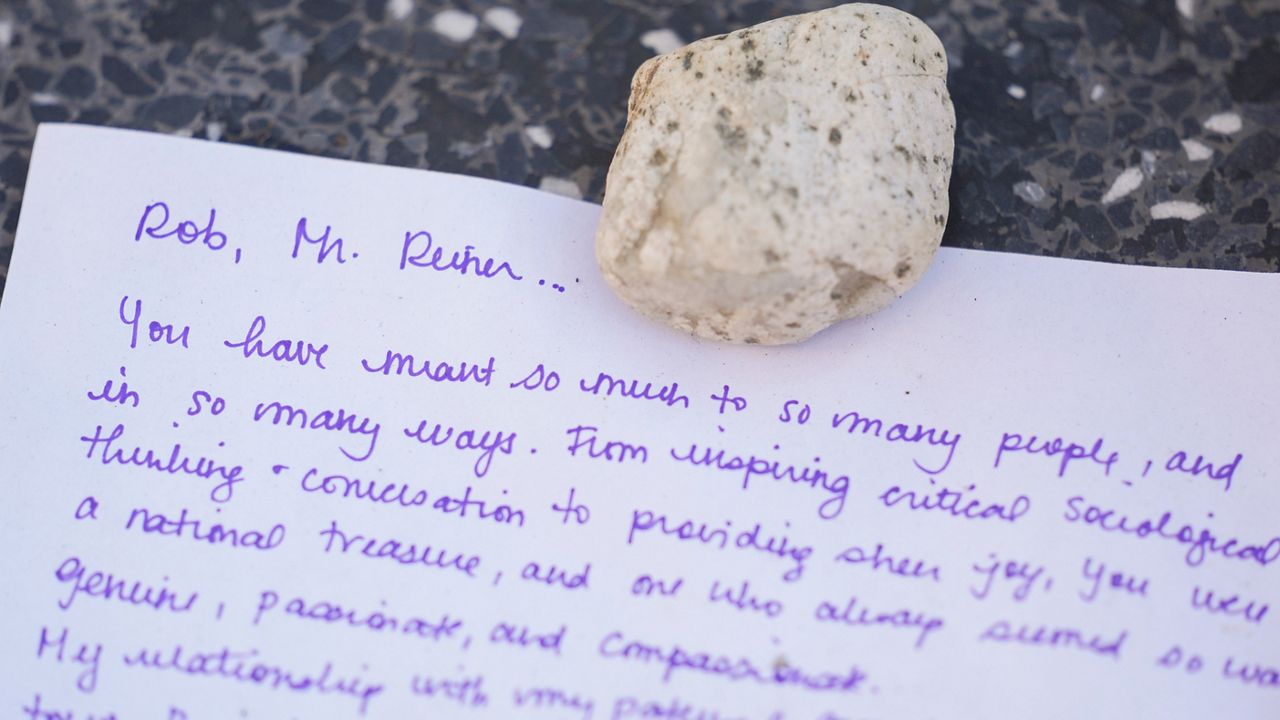 Rob, Mr. Reiner...
You have meant so much to so many people, and
in so many ways. From inspiring critical sociological
thinking + conversation to providing sheer joy, you were
a national treasure, and one who always seemed so wa
genuine, passionate, and compassionate.
My relationship with my